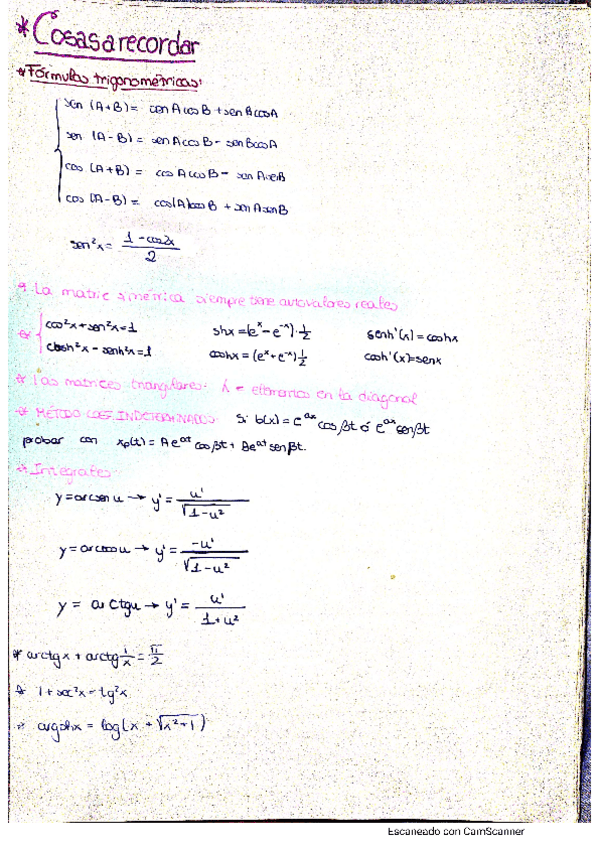 * Cosas a recordar
* Fórmulas trigonométricas:
sen (A+B) = senAcosB + senBcosA
sen (A-B) = senAcosB - senBcosA
cos (A+B) = cosAcosB - senAsenB
cos (A-B) = cos(A)cosB + senAsenB
sen²x = (1-cos2x)/2
* La matriz simétrica siempre tiene autovalores reales
* cos²x + sen²x = 1 shx = (e^x - e^-x)·1/2 senh'(x) = coshx
cosh²x - senh²x = 1 coshx = (e^x + e^-x)·1/2 cosh'(x) = senx
* Las matrices triangulares: λ = elementos en la diagonal
* MÉTODO COEF. INDETERMINADOS: Si b(x) = e^ax cosβt ó e^ax senβt
probar con xp(t) = Ae^at cosβt + Be^at senβt.
* Integrales:
y = arcsen u → y' = u'/√(1-u²)
y = arccos u → y' = -u'/√(1-u²)
y = arctgu → y' = u'/(1+u²)
* arctgx + arctg 1/x = π/2
* 1 + sec²x = tg²x
* argshx = log(x + √(x²+1))
Escaneado con CamScanner